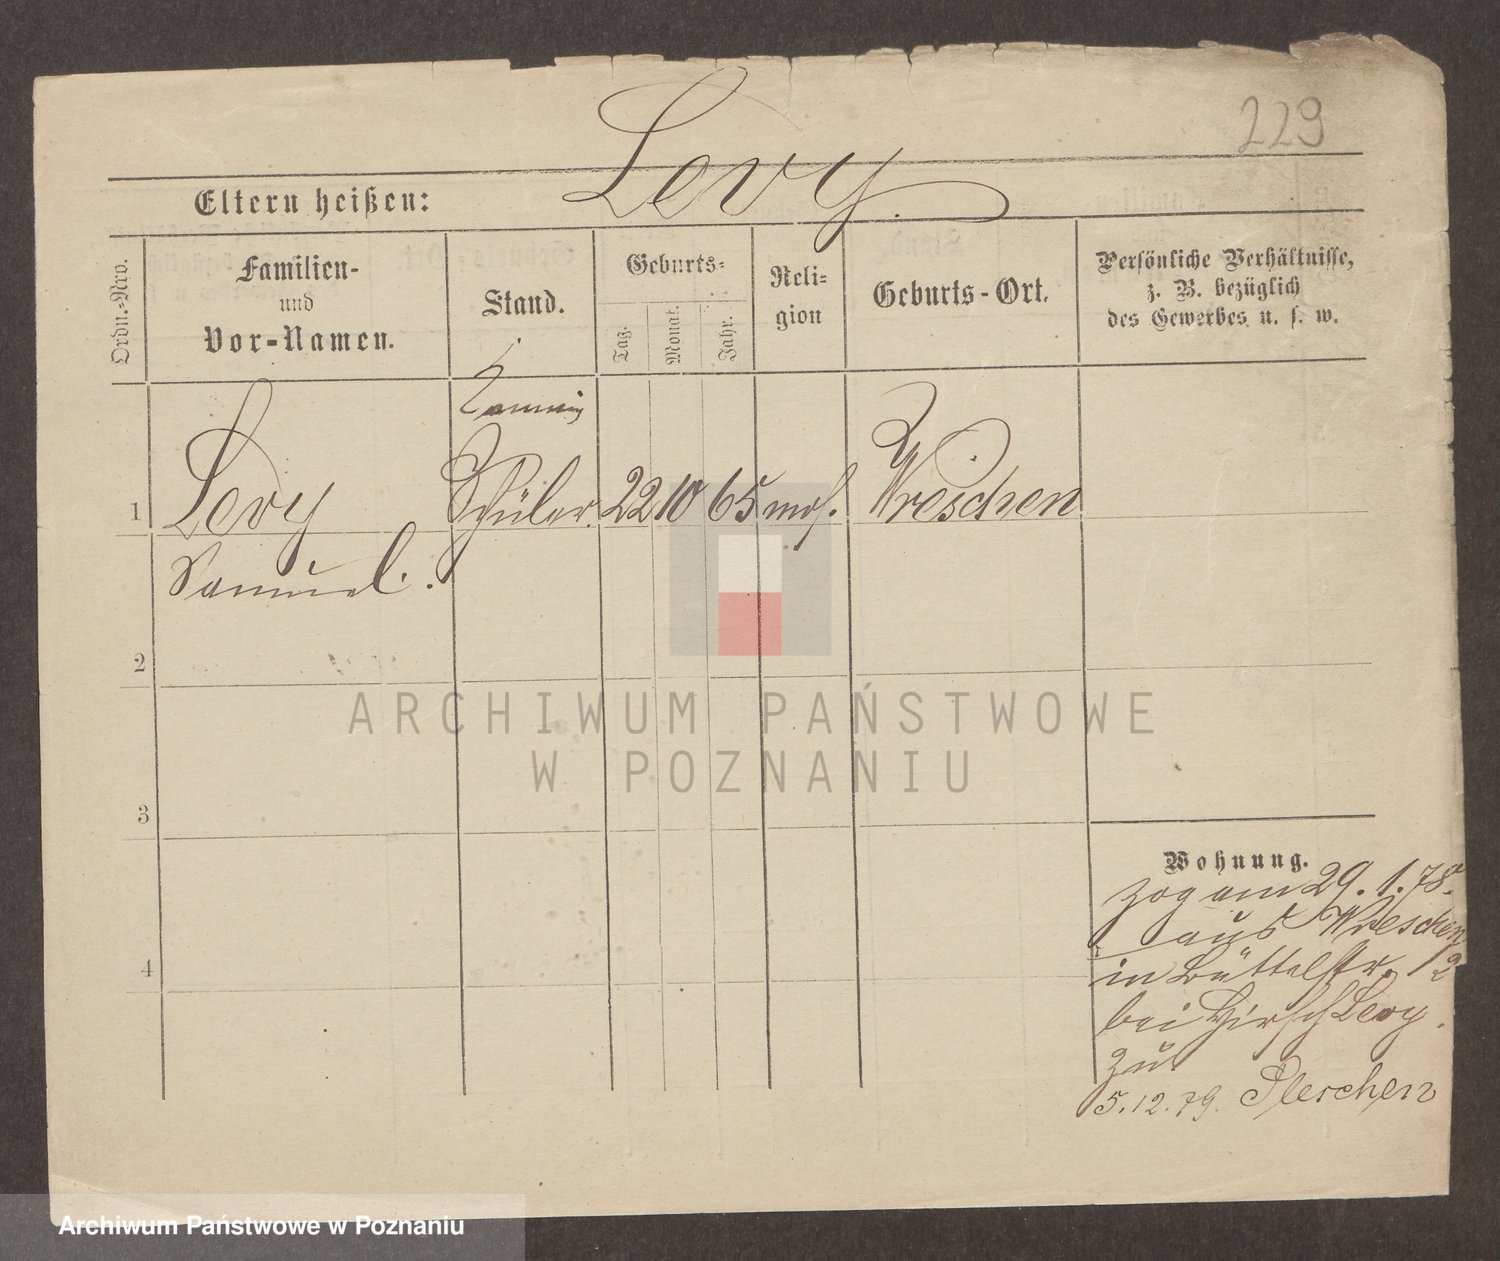 229
Levy.
Eltern heißen:
Ordn.-Nro.
Familien-
und
Vor-Namen.
Stand.
Geburts-
Tag.
Monat.
Jahr.
Reli-
gion
Geburts-Ort.
Persönliche Verhältnisse,
z. B. bezüglich
des Gewerbes u. s. w.
1 Levy Schüler. 22 10 65 mos. Wreschen
Samuel.
2
3
4
Wohnung.
zog am 29. 1. 78.
aus Wreschen
in Büttelstr. 12
bei Hirsch Levy.
zu
5. 12. 79. Pleschen
ARCHIWUM PAŃSTWOWE
W POZNANIU
Archiwum Państwowe w Poznaniu